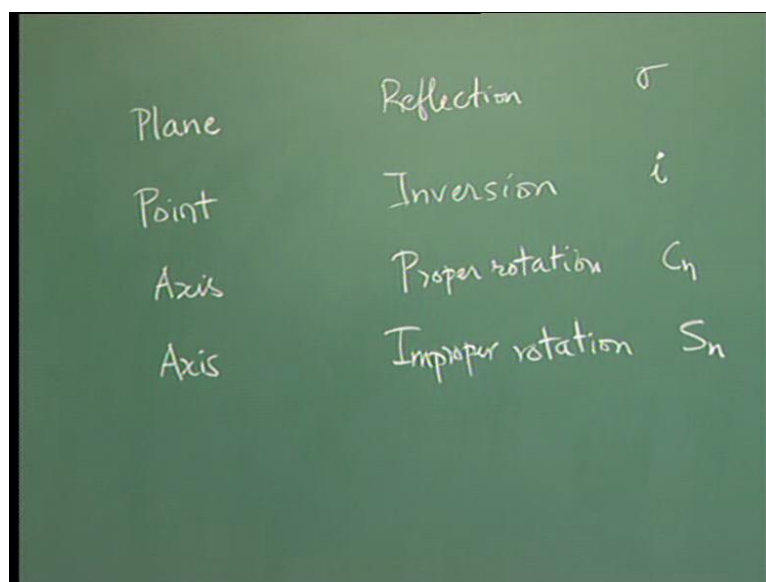 Plane Reflection σ
Point Inversion i
Axis Proper rotation Cn
Axis Improper rotation Sn